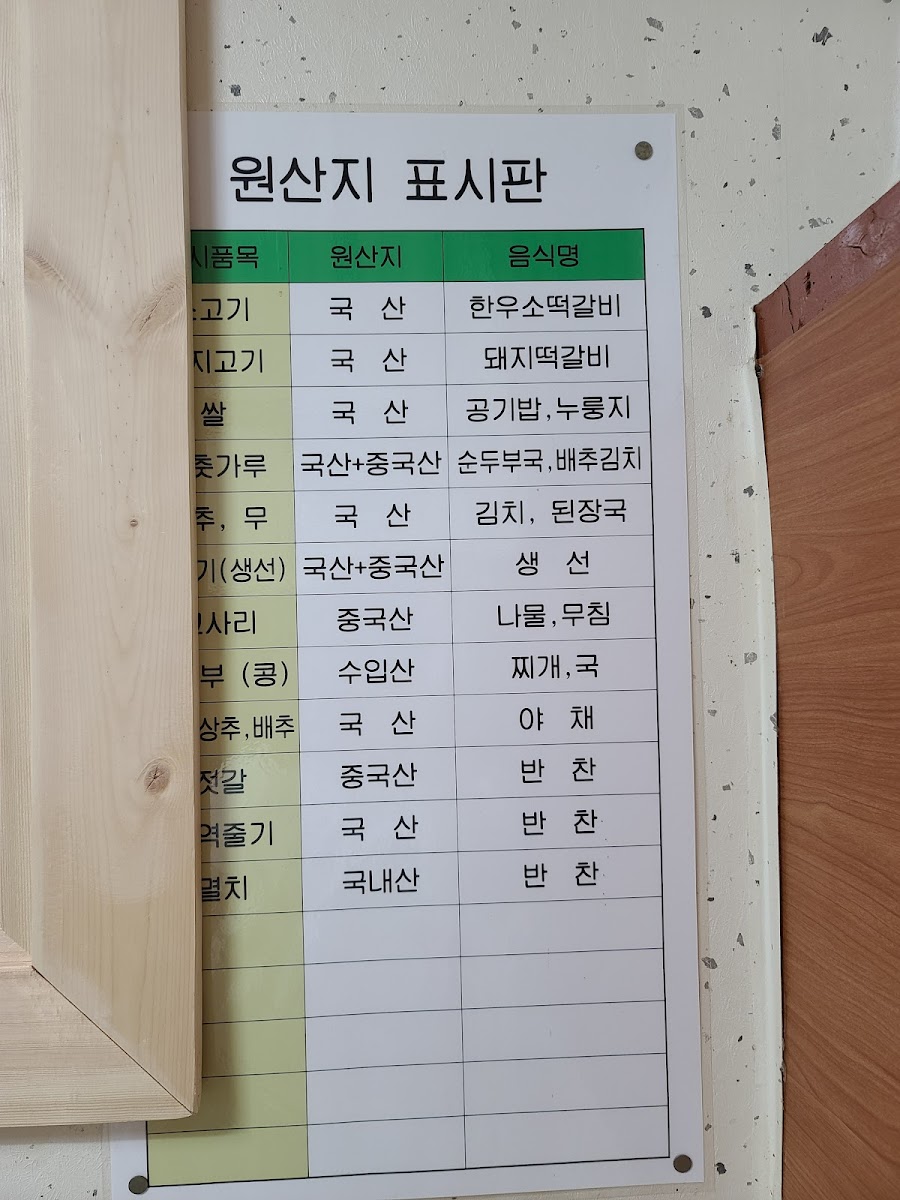 원산지 표시판
시품목 원산지 음식명
고기 국 산 한우소떡갈비
지고기 국 산 돼지떡갈비
쌀 국 산 공기밥,누룽지
춧가루 국산+중국산 순두부국,배추김치
추, 무 국 산 김치, 된장국
기(생선) 국산+중국산 생 선
사리 중국산 나물,무침
부 (콩) 수입산 찌개,국
상추,배추 국 산 야 채
젓갈 중국산 반 찬
역줄기 국 산 반 찬
멸치 국내산 반 찬